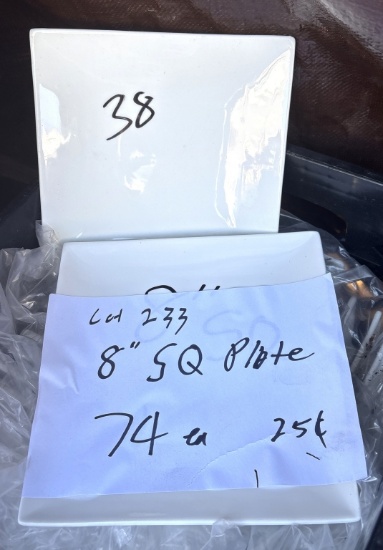 38
Lot 233
8" SQ Plate
74 ea 25¢